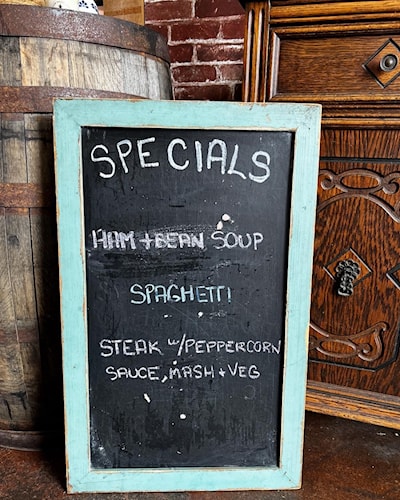 SPECIALS
HAM + BEAN SOUP
SPAGHETTI
STEAK w/PEPPERCORN
SAUCE, MASH + VEG